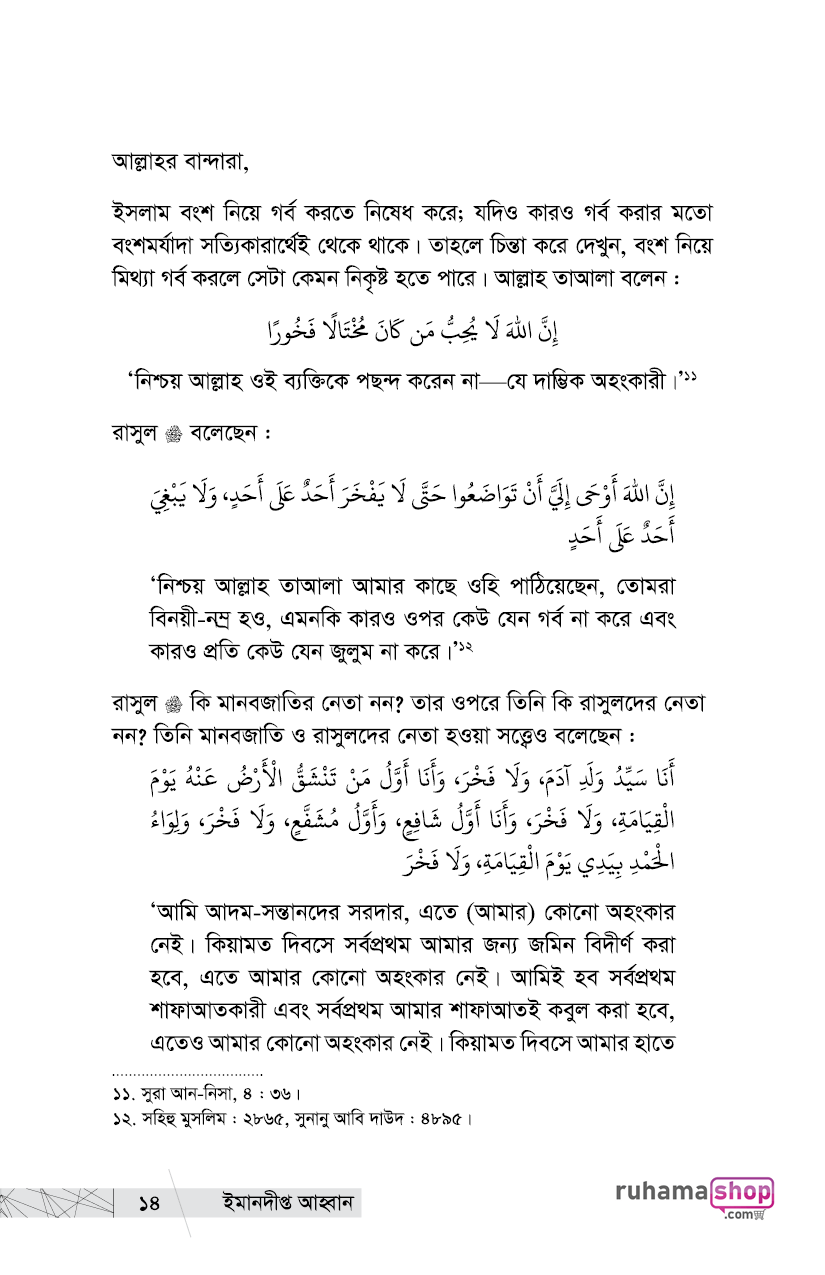 আল্লাহর বান্দারা,
ইসলাম বংশ নিয়ে গর্ব করতে নিষেধ করে; যদিও কারও গর্ব করার মতো
বংশমর্যাদা সত্যিকারার্থেই থেকে থাকে। তাহলে চিন্তা করে দেখুন, বংশ নিয়ে
মিথ্যা গর্ব করলে সেটা কেমন নিকৃষ্ট হতে পারে। আল্লাহ তাআলা বলেন :
إِنَّ اللهَ لَا يُحِبُّ مَن كَانَ مُخْتَالًا فَخُورًا
‘নিশ্চয় আল্লাহ ওই ব্যক্তিকে পছন্দ করেন না—যে দাম্ভিক অহংকারী।’১১
রাসুল ﷺ বলেছেন :
إِنَّ اللهَ أَوْحَى إِلَيَّ أَنْ تَوَاضَعُوا حَتَّى لَا يَفْخَرَ أَحَدٌ عَلَى أَحَدٍ، وَلَا يَبْغِيَ
أَحَدٌ عَلَى أَحَدٍ
‘নিশ্চয় আল্লাহ তাআলা আমার কাছে ওহি পাঠিয়েছেন, তোমরা
বিনয়ী-নম্র হও, এমনকি কারও ওপর কেউ যেন গর্ব না করে এবং
কারও প্রতি কেউ যেন জুলুম না করে।’১২
রাসুল ﷺ কি মানবজাতির নেতা নন? তার ওপরে তিনি কি রাসুলদের নেতা
নন? তিনি মানবজাতি ও রাসুলদের নেতা হওয়া সত্ত্বেও বলেছেন :
أَنَا سَيِّدُ وَلَدِ آدَمَ، وَلَا فَخْرَ، وَأَنَا أَوَّلُ مَنْ تَنْشَقُّ الْأَرْضُ عَنْهُ يَوْمَ
الْقِيَامَةِ، وَلَا فَخْرَ، وَأَنَا أَوَّلُ شَافِعٍ، وَأَوَّلُ مُشَفَّعٍ، وَلَا فَخْرَ، وَلِوَاءُ
الْحَمْدِ بِيَدِي يَوْمَ الْقِيَامَةِ، وَلَا فَخْرَ
‘আমি আদম-সন্তানদের সরদার, এতে (আমার) কোনো অহংকার
নেই। কিয়ামত দিবসে সর্বপ্রথম আমার জন্য জমিন বিদীর্ণ করা
হবে, এতে আমার কোনো অহংকার নেই। আমিই হব সর্বপ্রথম
শাফাআতকারী এবং সর্বপ্রথম আমার শাফাআতই কবুল করা হবে,
এতেও আমার কোনো অহংকার নেই। কিয়ামত দিবসে আমার হাতে
১১. সুরা আন-নিসা, ৪ : ৩৬।
১২. সহিহু মুসলিম : ২৮৬৫, সুনানু আবি দাউদ : ৪৮৯৫।
১৪ ইমানদীপ্ত আহ্বান
ruhamashop
.com